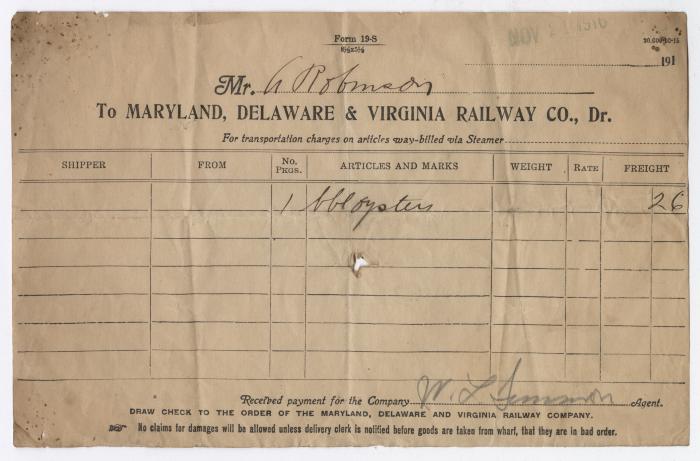 Form 19-S
8½x5½
NOV 2 1916
191
Mr. A Robinson
To MARYLAND, DELAWARE & VIRGINIA RAILWAY CO., Dr.
For transportation charges on articles way-billed via Steamer
SHIPPER FROM No. Pkgs. ARTICLES AND MARKS WEIGHT RATE FREIGHT
1 bbl oysters 26
Received payment for the Company W. L. Simmon Agent.
DRAW CHECK TO THE ORDER OF THE MARYLAND, DELAWARE AND VIRGINIA RAILWAY COMPANY.
☞ No claims for damages will be allowed unless delivery clerk is notified before goods are taken from wharf, that they are in bad order.